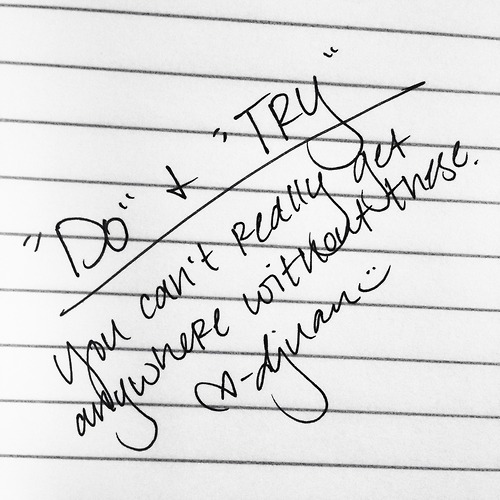 "Do" & "TRY"
you can't really get
anywhere without these.
-djnan